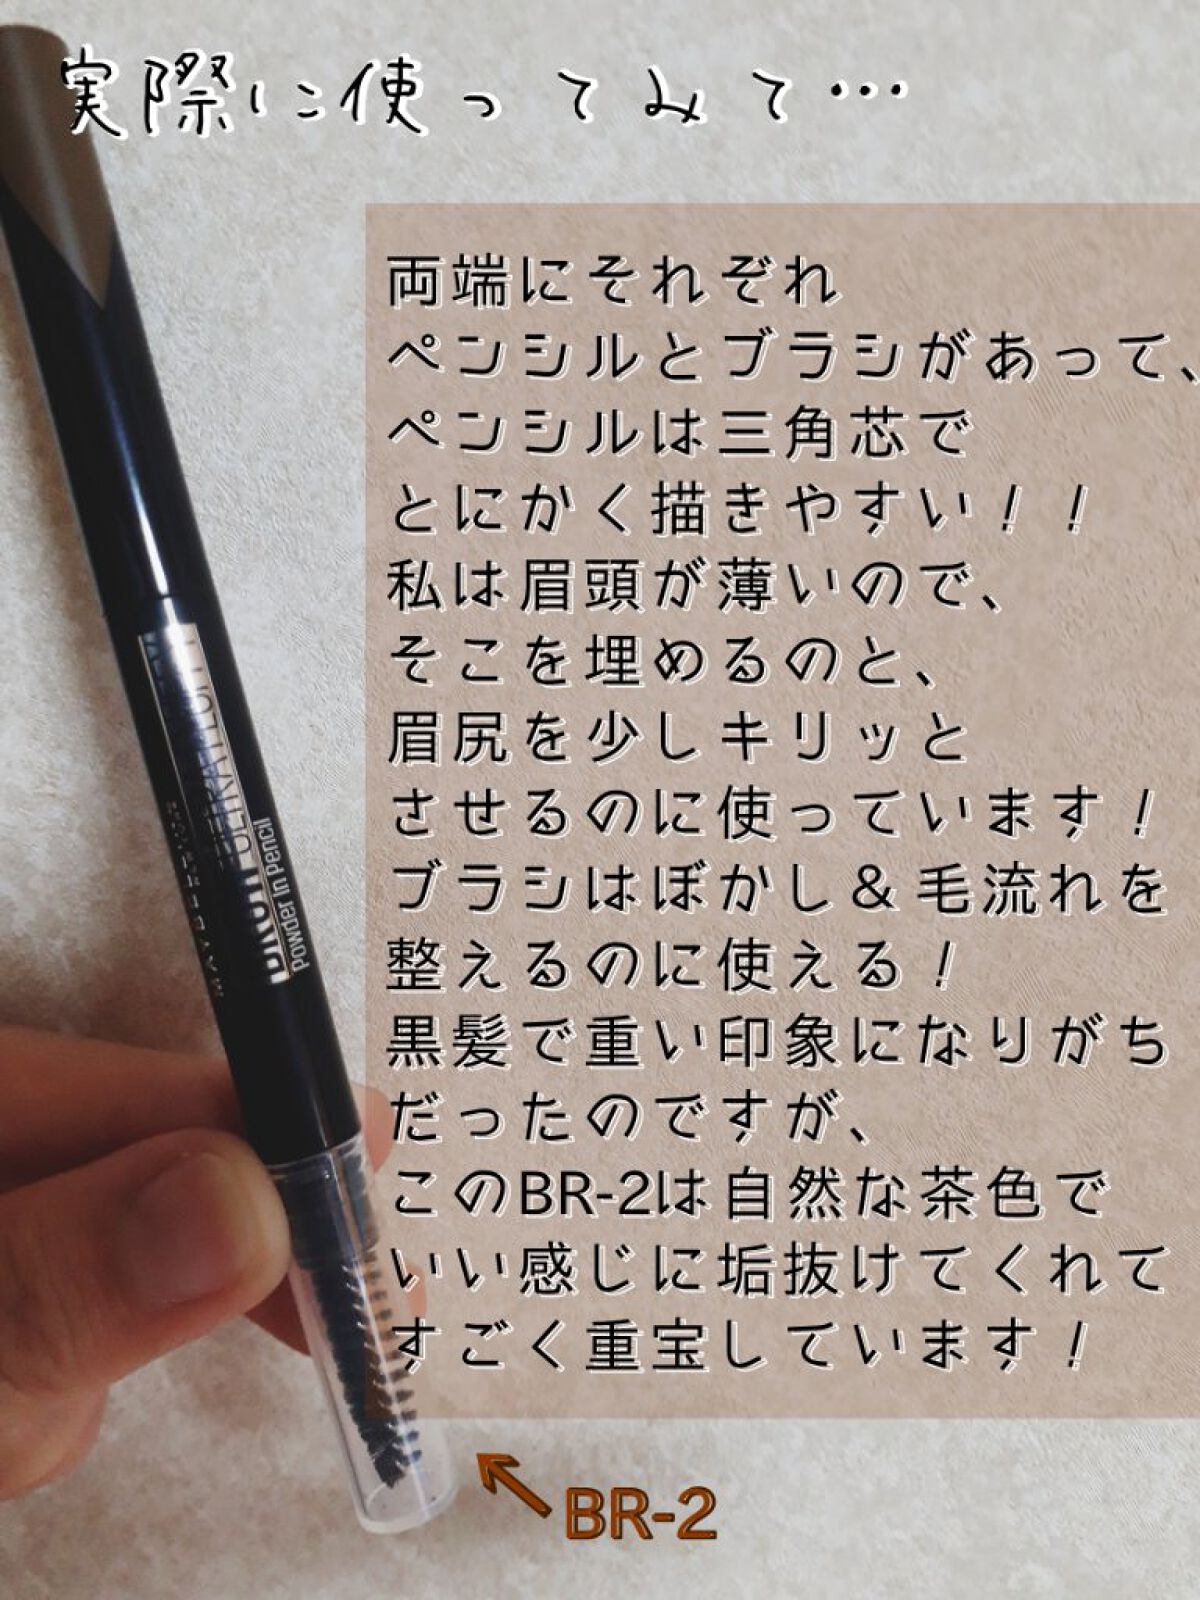 実際に使ってみて…
両端にそれぞれ
ペンシルとブラシがあって、
ペンシルは三角芯で
とにかく描きやすい！！
私は眉頭が薄いので、
そこを埋めるのと、
眉尻を少しキリッと
させるのに使っています！
ブラシはぼかし＆毛流れを
整えるのに使える！
黒髪で重い印象になりがち
だったのですが、
このBR-2は自然な茶色で
いい感じに垢抜けてくれて
すごく重宝しています！
powder in pencil
BR-2